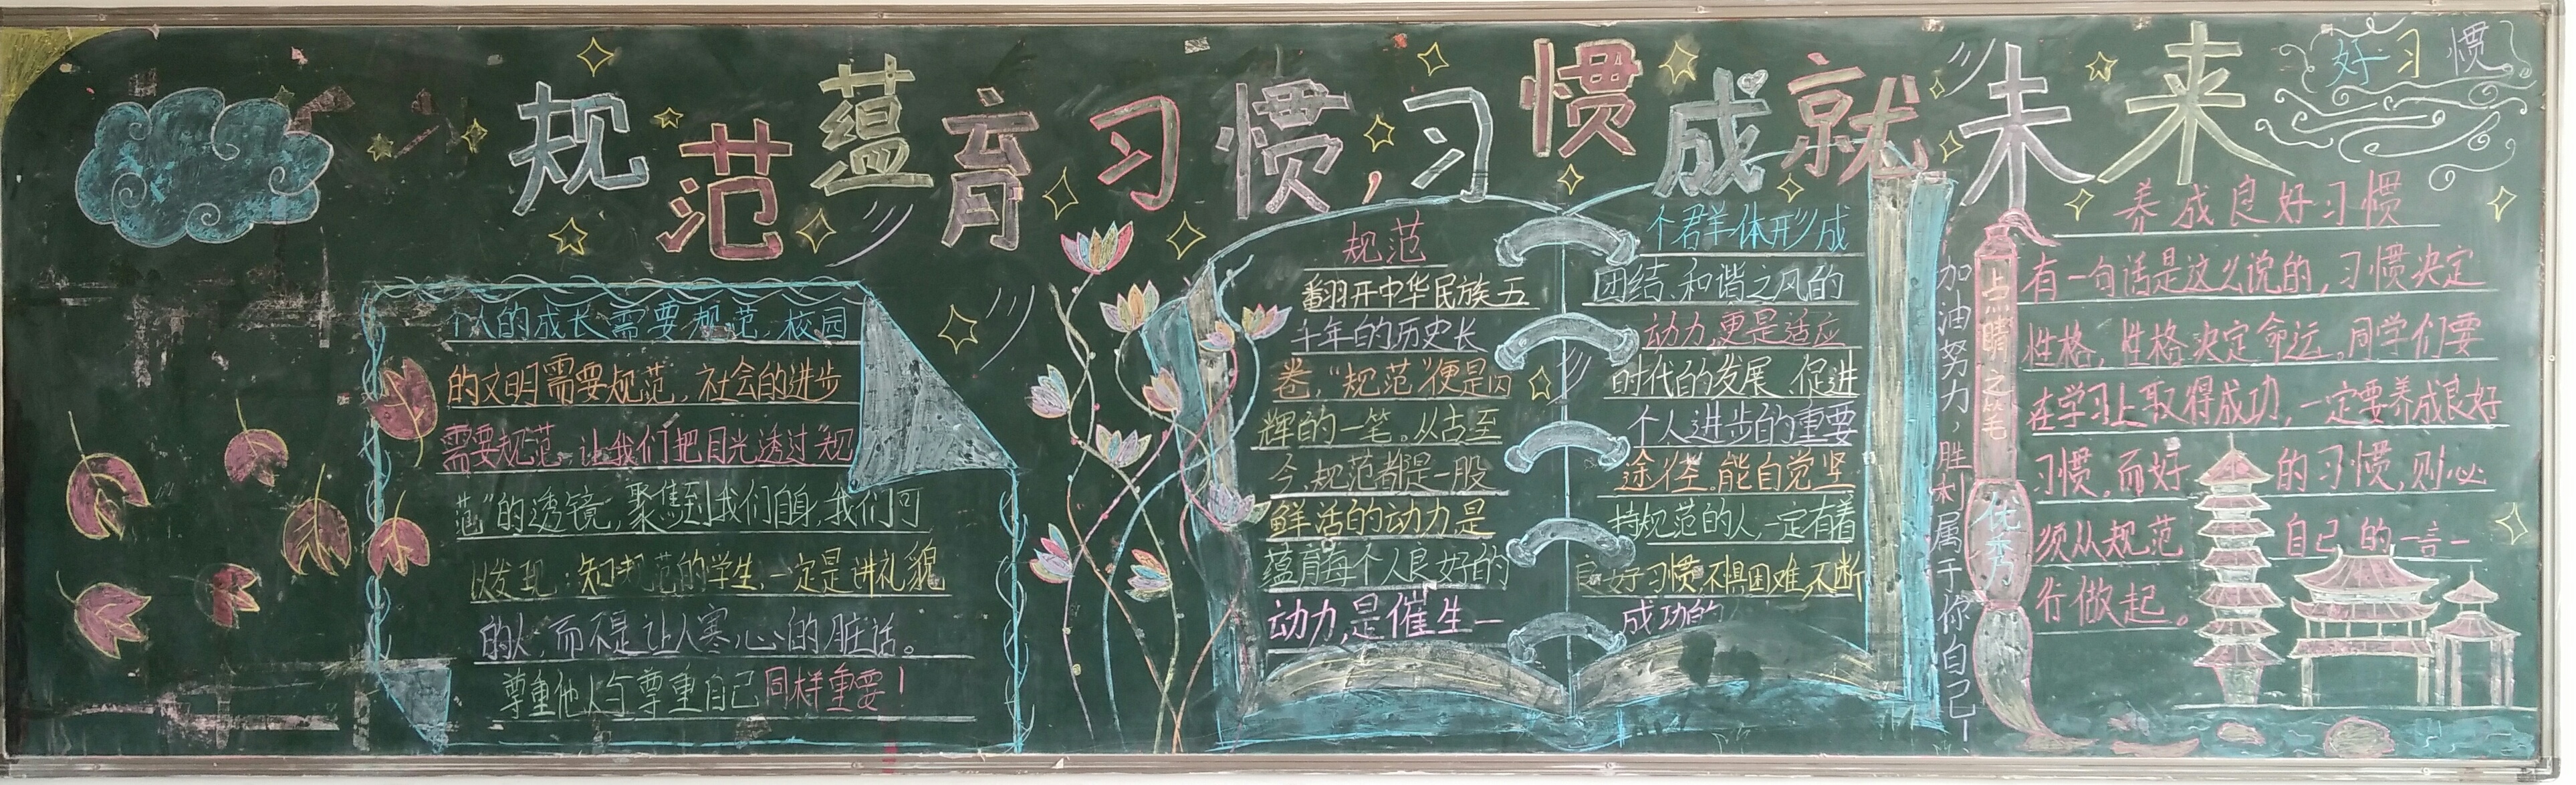 规范蕴育习惯,习惯成就未来
好习惯
个人的成长需要规范,校园
的文明需要规范,社会的进步
需要规范。让我们把目光透过"规
范"的透镜,聚焦到我们自身,我们可
以发现:知规范的学生,一定是讲礼貌
的人,而不是让人寒心的脏话。
尊重他人与尊重自己同样重要!
规范
翻开中华民族五
千年的历史长
卷,"规范"便是闪
辉的一笔。从古至
今,规范都是一股
鲜活的动力,是
蕴育每个人良好的
动力,是催生一
个群体形成
团结、和谐之风的
动力,更是适应
时代的发展、促进
个人进步的重要
途径。能自觉坚
持规范的人,一定有着
良好习惯,不惧困难,不断
成功的
加油努力,胜利属于你自己!
点睛之笔
优秀
养成良好习惯
有一句话是这么说的,习惯决定
性格,性格决定命运。同学们要
在学习上取得成功,一定要养成良好
习惯,而好的习惯,则必
须从规范自己的一言一
行做起。